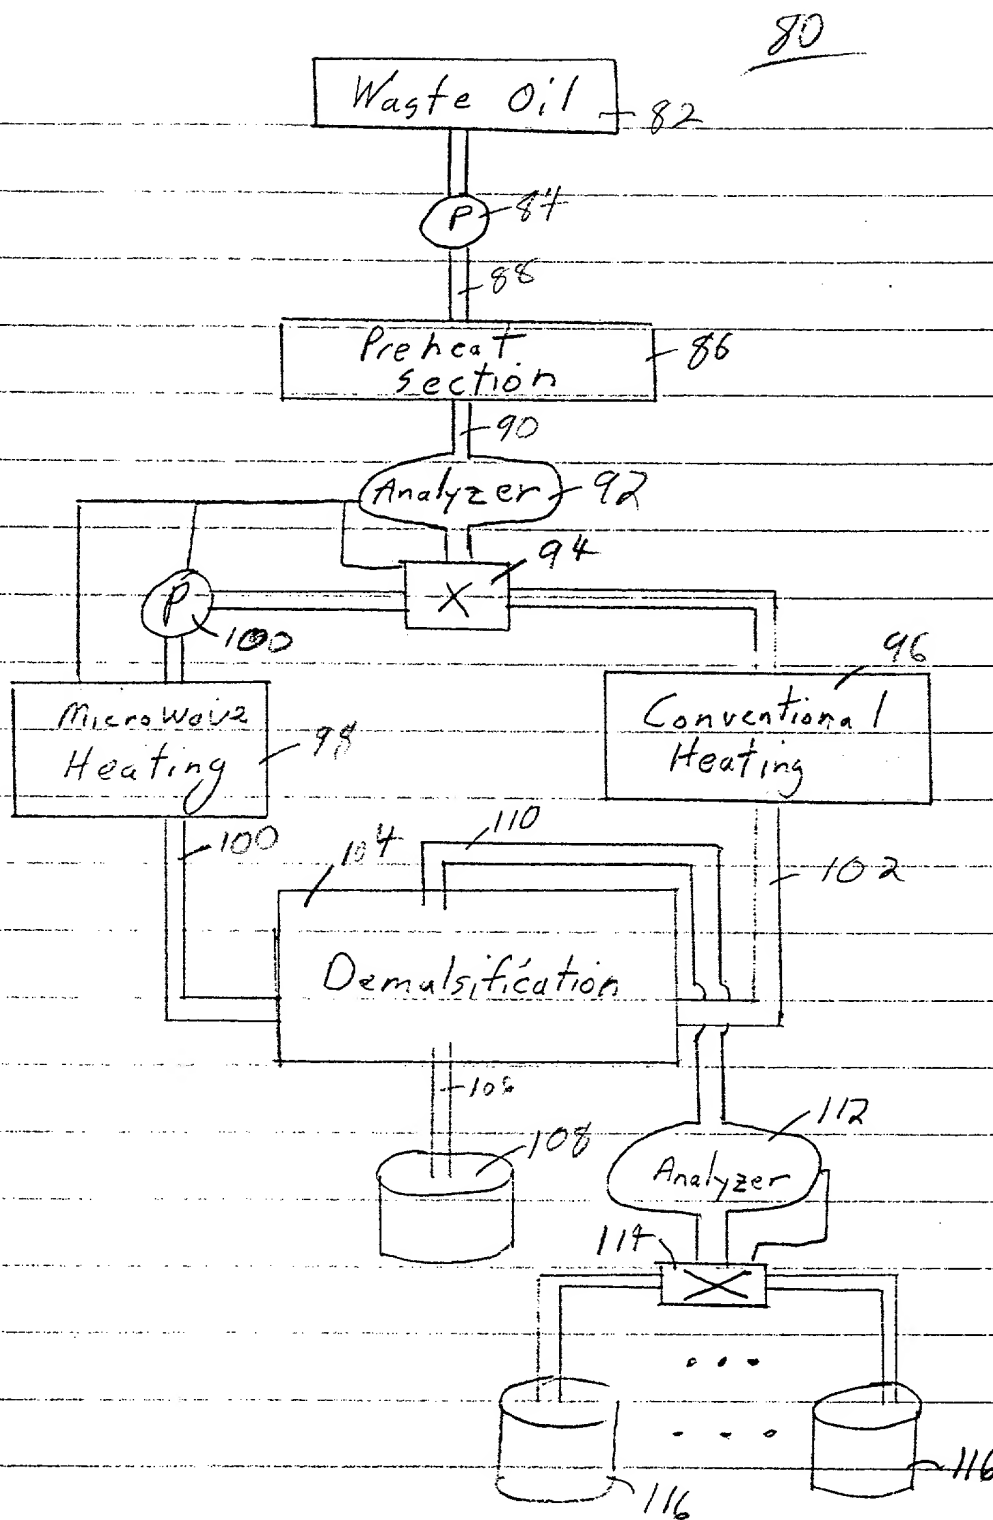 80
Waste Oil
82
P
84
88
Preheat
section
86
90
Analyzer
92
94
X
P
100
96
Microwave
Heating
98
Conventional
Heating
100
104
110
102
Demulsification
108
112
Analyzer
114
116
116